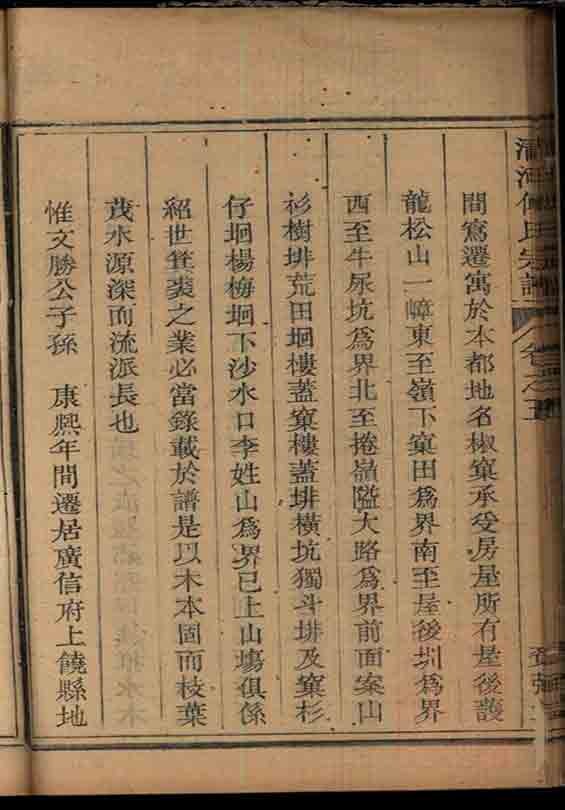 間寫遷寓於本都地名椒窠承受房屋所有屋後護
龍松山一嶂東至嶺下窠田爲界南至屋後圳爲界
西至牛尿坑爲界北至捲嶺隘大路爲界前面案山
杉樹排荒田垇樓蓋窠樓蓋排橫坑獨斗排及窠杉
仔垇楊梅垇下沙水口李姓山爲界已上山塲俱係
紹世箕裘之業必當錄載於譜是以木本固而枝葉
茂水源深而流派長也
惟文勝公子孫 康熙年間遷居廣信府上饒縣地